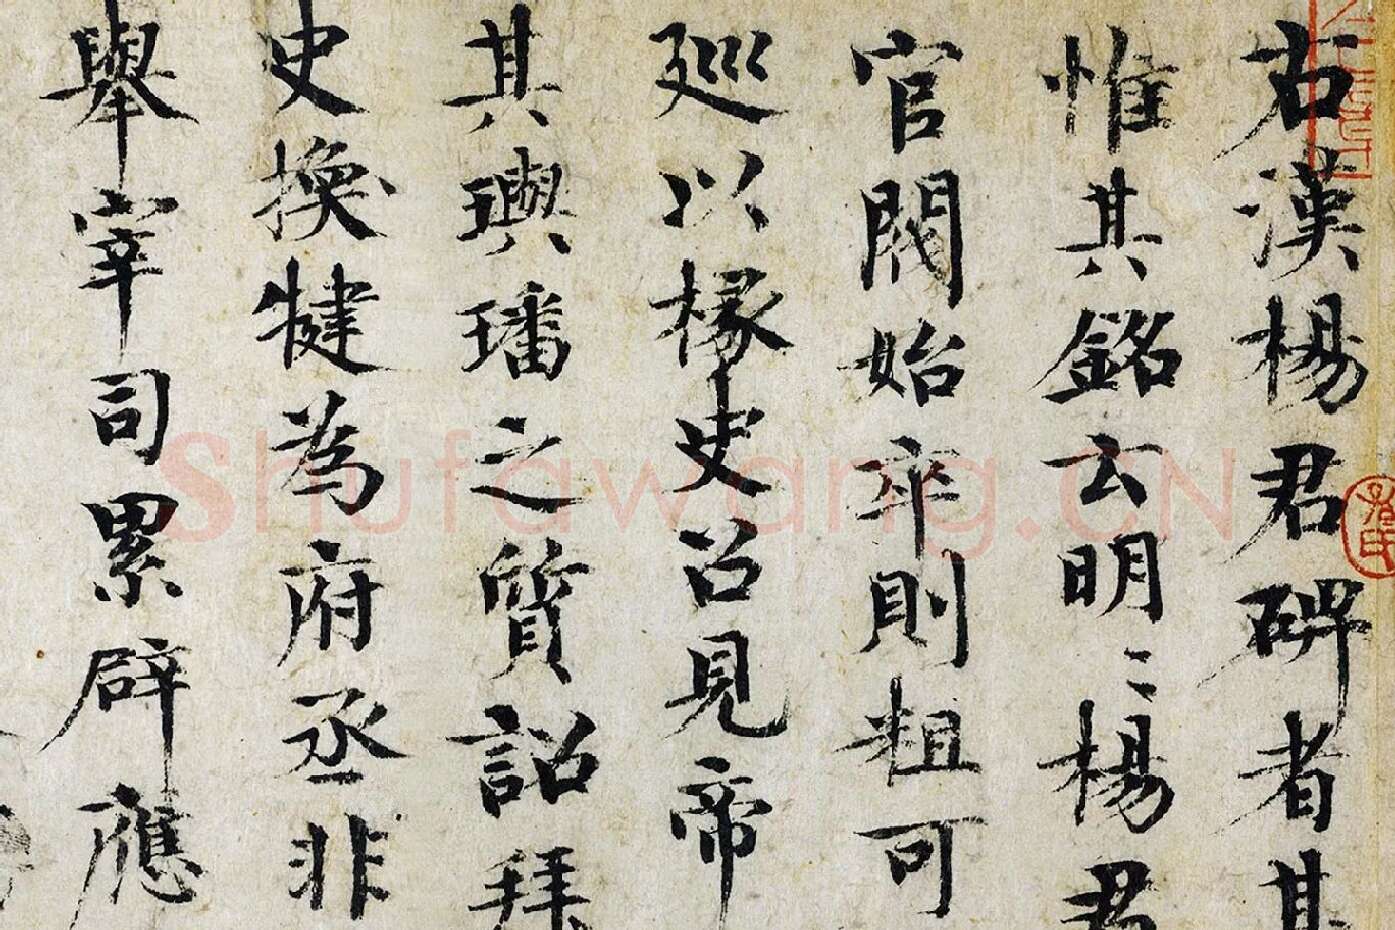 右漢楊君碑者其
惟其銘云明〻楊君
官閥始卒則粗可
廵以掾史召見帝
其璵璠之質詔拜
史換犍為府丞非
舉宰司累辟應
Shufawang.CN